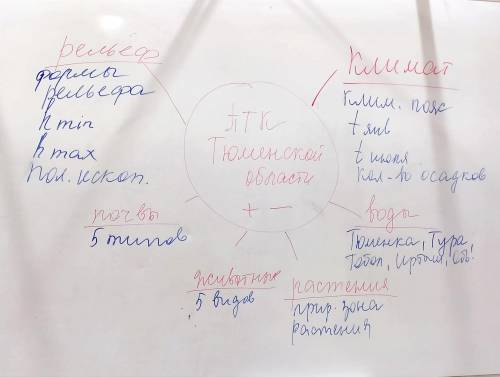 рельеф
формы
рельефа
h min
h max
пол. ископ.
Климат
клим. пояс
t янв
t июля
кол-во осадков
ПТК
Тюменской
области
+ −
почвы
5 типов
животные
5 видов
растения
прир. зона
растения
воды
Тюменка, Тура,
Тобол, Иртыш, Обь!